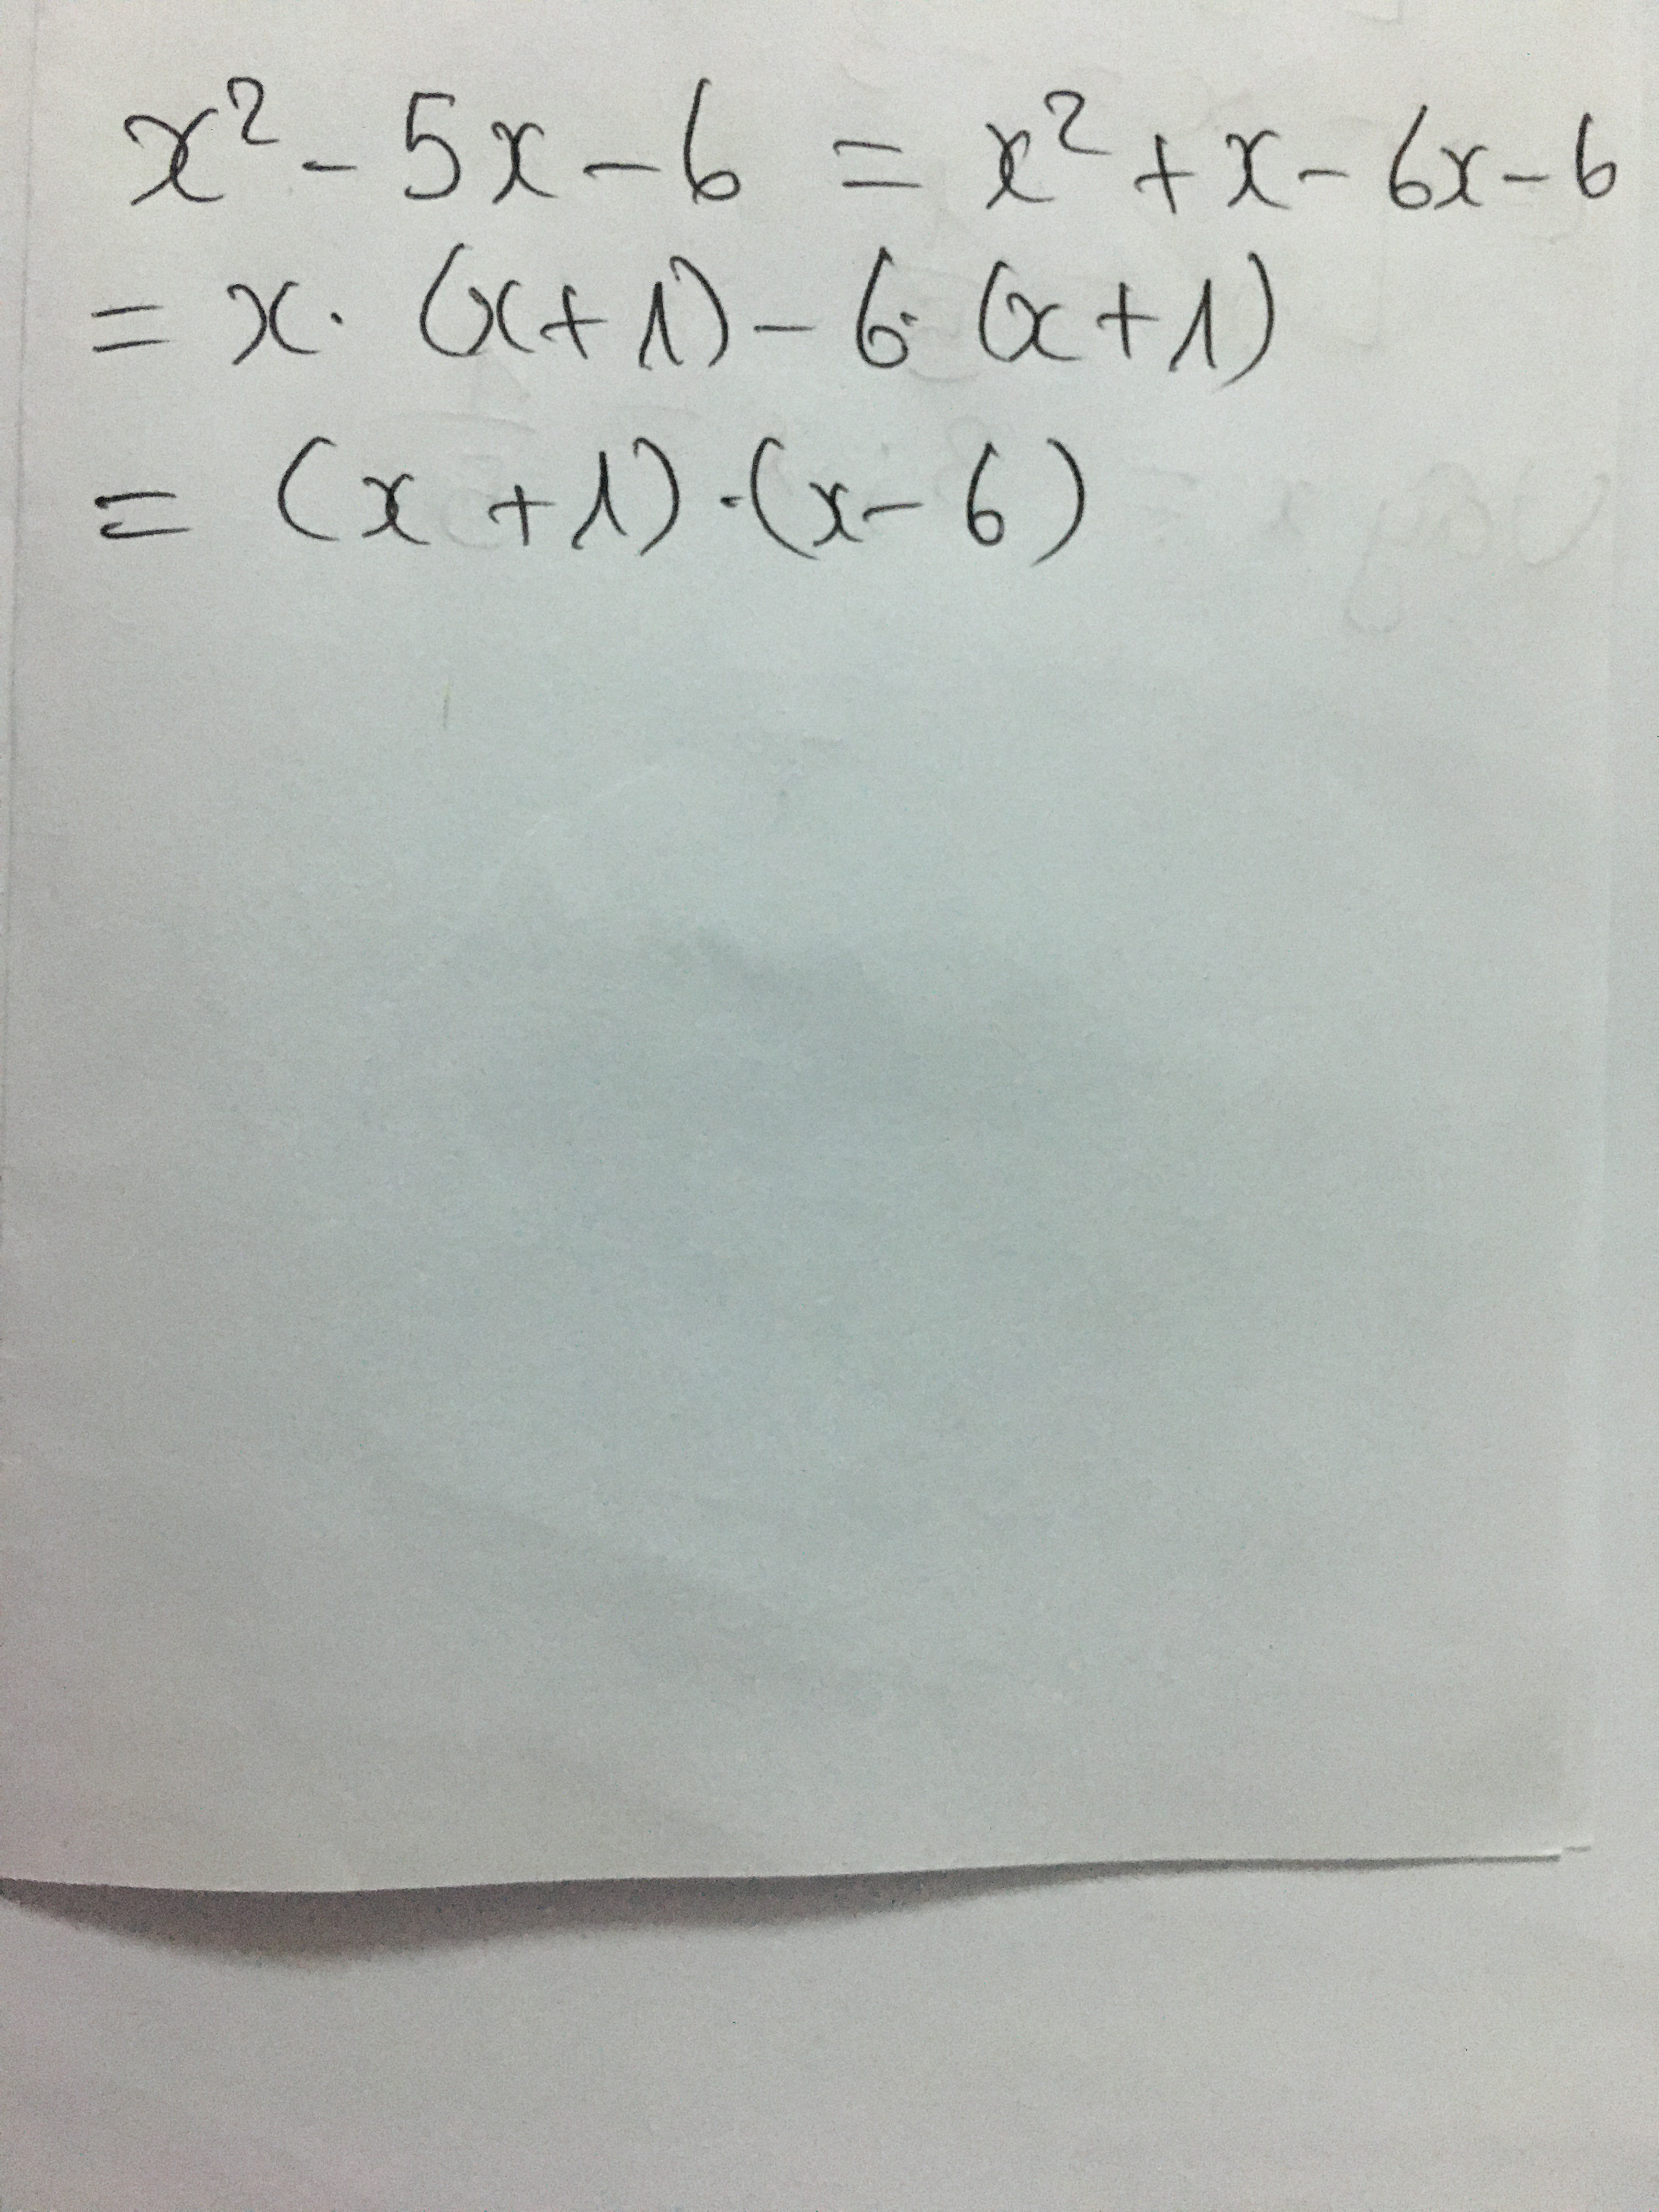 x² - 5x - 6 = x² + x - 6x - 6
= x · (x + 1) - 6 · (x + 1)
= (x + 1) · (x - 6)